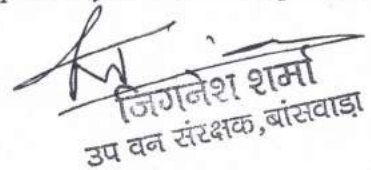 जिगनेश शर्मा
उप वन संरक्षक,बांसवाड़ा